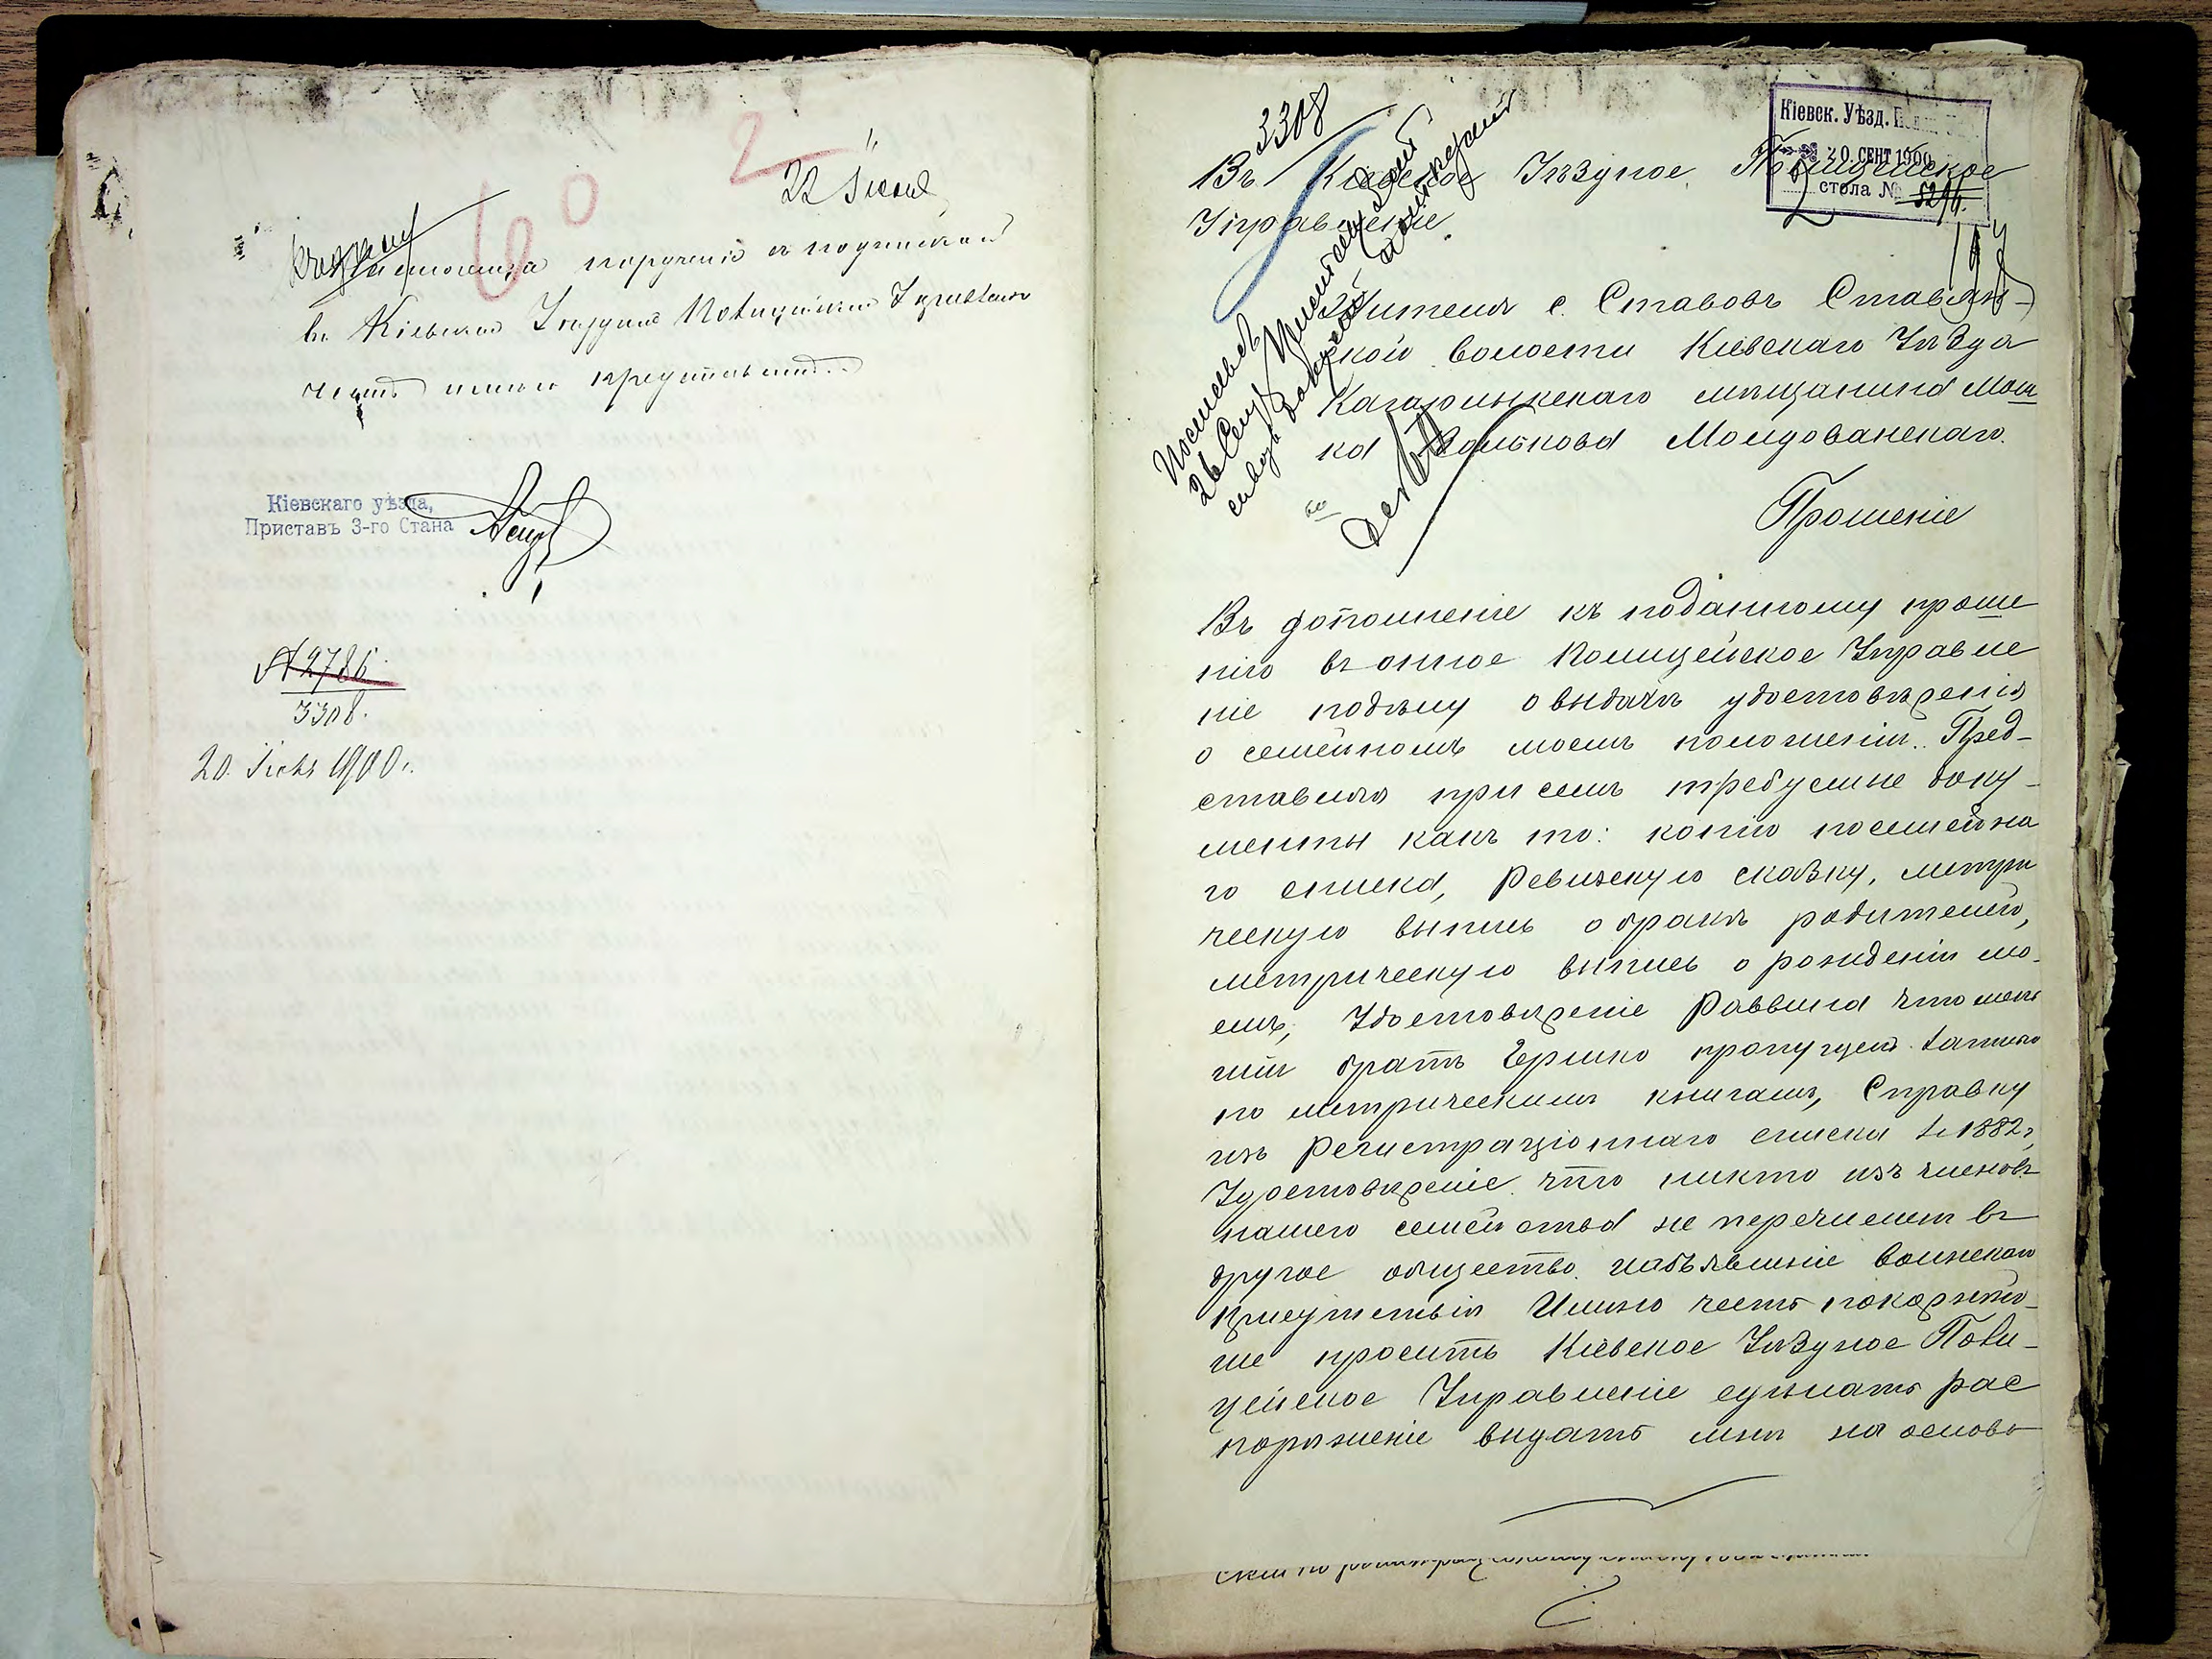 2
60
22 Іюня
настоящее порученіе съ подпискою
въ Кіевское Уѣздное Полицейское Управленіе
честь имѣю представить.
Кіевскаго уѣзда,
Приставъ 3-го Стана
№ 2786
3308.
20 Іюня 1900 г.
3308
Кіевск. Уѣзд.
20. СЕНТ 1900
стола №
Въ Кіевское Уѣздное Полицейское
Управленіе.
Жителя с. Ставовъ Ставян-
ской волости Кіевскаго Уѣзда
Кагарлыкскаго мѣщанина Мош
ка Волькова Молдованскаго.
Прошеніе
Въ дополненіе къ поданному проше
нію въ оное Полицейское Управле
ніе о выдачѣ удостовѣренія
о семейномъ моемъ положеніи. Пред-
ставляя при семъ требуемые доку-
менты какъ то: копію посемейна
го списка, Ревизскую сказку, метри
ческую выпись о бракѣ родителей,
метрическую выпись о рожденіи мо-
емъ, Удостовѣреніе Раввина что
братъ Гершко пропущен
по метрическимъ книгамъ, Справку
изъ Регистраціоннаго списка 1882 г,
Удостовѣреніе что никто изъ членовъ
нашего семейства не перечислен въ
другое общество, и объявленіе воинскаго
присутствія Имѣю честь покорнѣй-
ше просить Кіевское Уѣздное Поли-
цейское Управленіе сдѣлать рас
поряженіе выдать мнѣ на основа